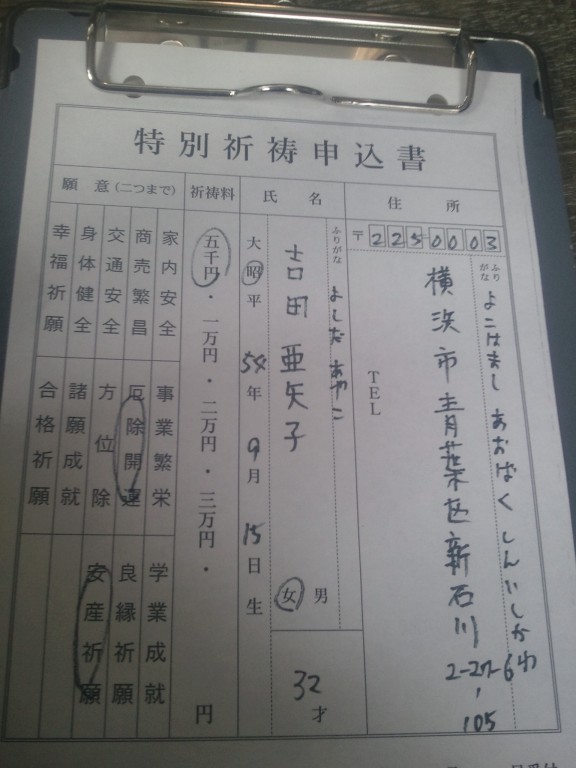 特別祈祷申込書
住所
〒225-0003
ふりがな よこはまし あおばく しんいしかわ
横浜市青葉区新石川
2-27-6-105
TEL
氏名
ふりがな よしだ あやこ
吉田亜矢子
男
女
32才
大昭平 54年9月15日生
祈祷料
五千円・一万円・二万円・三万円・ 円
願意(二つまで)
家内安全 事業繁栄 学業成就
商売繁昌 厄除開運 良縁祈願
交通安全 方位除 安産祈願
身体健全 諸願成就
幸福祈願 合格祈願